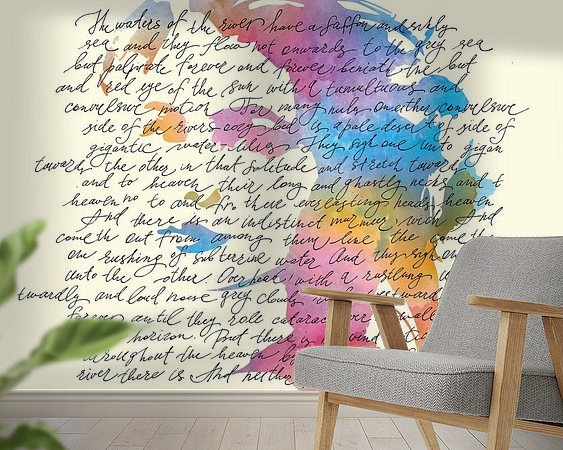 The waters of the river have a saffron and sickly
sea and they flow not onwards to the grey sea
but palpitate forever and forever beneath the but
and red eye of the sun with a tumultuous and
convulsive motion For many miles on either convulsive
side of the rivers oozy bed is a pale desert of side of
gigantic water-lilies They sigh one unto gigan
towards the other in that solitude and stretch towards
and to heaven their long and ghastly necks and t
heaven no to and fro their everlasting heads heaven
And there is an indistinct murmur with And
cometh out from among them like the cometh
one rushing of subterrene water And they sigh one
unto the other Overhead with a rustling u
twardly and loud noise grey clouds westward
forever until they role catarac wall
horizon But there is wind
throughout the heaven by
river there is And neither